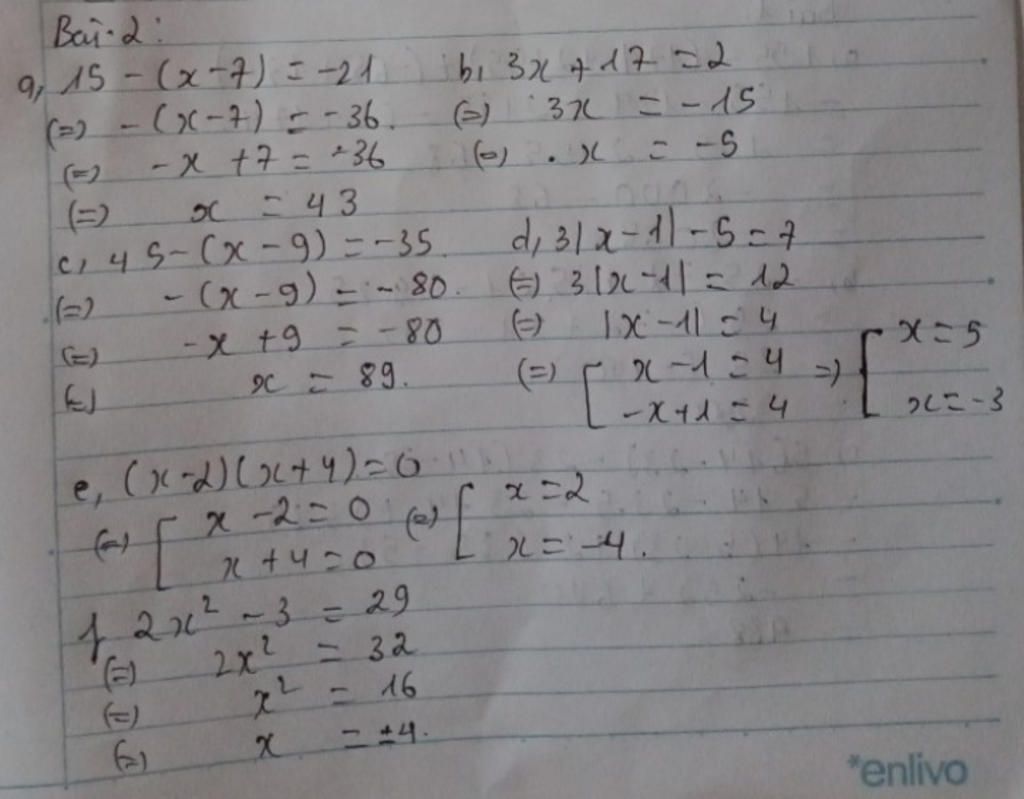 Bài 2:
a, 15 - (x-7) = -21
(=) -(x-7) = -36.
(=) -x +7 = -36
(=) x = 43
b, 3x + 17 = 2
(=) 3x = -15
(=) x = -5
c, 45-(x-9) = -35.
(=) -(x-9) = -80.
(=) -x +9 = -80
(=) x = 89.
d, 3|x-1| - 5 = 7
(=) 3|x-1| = 12
(=) |x-1| = 4
(=) [ x-1 = 4 =) [ x = 5
-x+1 = 4 x = -3
e, (x-2)(x+4)=0
(=) [ x -2 = 0 (=) [ x = 2
x +4 = 0 x = -4.
f 2x² - 3 = 29
(=) 2x² = 32
(=) x² = 16
(=) x = ±4.
*enlivo